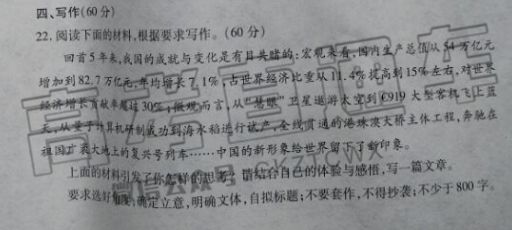 四、写作(60分)
22. 阅读下面的材料,根据要求写作。(60分)
回首5年来,我国的成就与变化是有目共睹的:宏观来看,国内生产总值从54万亿元
增加到82.7万亿元,年均增长7.1%,占世界经济比重从11.4%提高到15%左右,对世界
经济增长贡献率超过30%;微观而言,从“慧眼”卫星遨游太空到C919大型客机飞上蓝
天,从量子计算机研制成功到海水稻进行试产,全线贯通的港珠澳大桥主体工程,奔驰在
祖国广袤大地上的复兴号列车……中国的新形象给世界留下了新印象。
上面的材料引发了你怎样的思考?请结合自己的体验与感悟,写一篇文章。
要求选好角度,确定立意,明确文体,自拟标题;不要套作,不得抄袭;不少于800字。